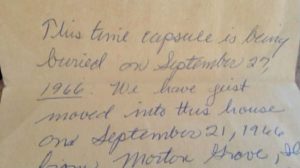 This time capsule is being
buried on September 27,
1966. We have just
moved into this house
on September 21, 1966
from Morton Grove, Ill